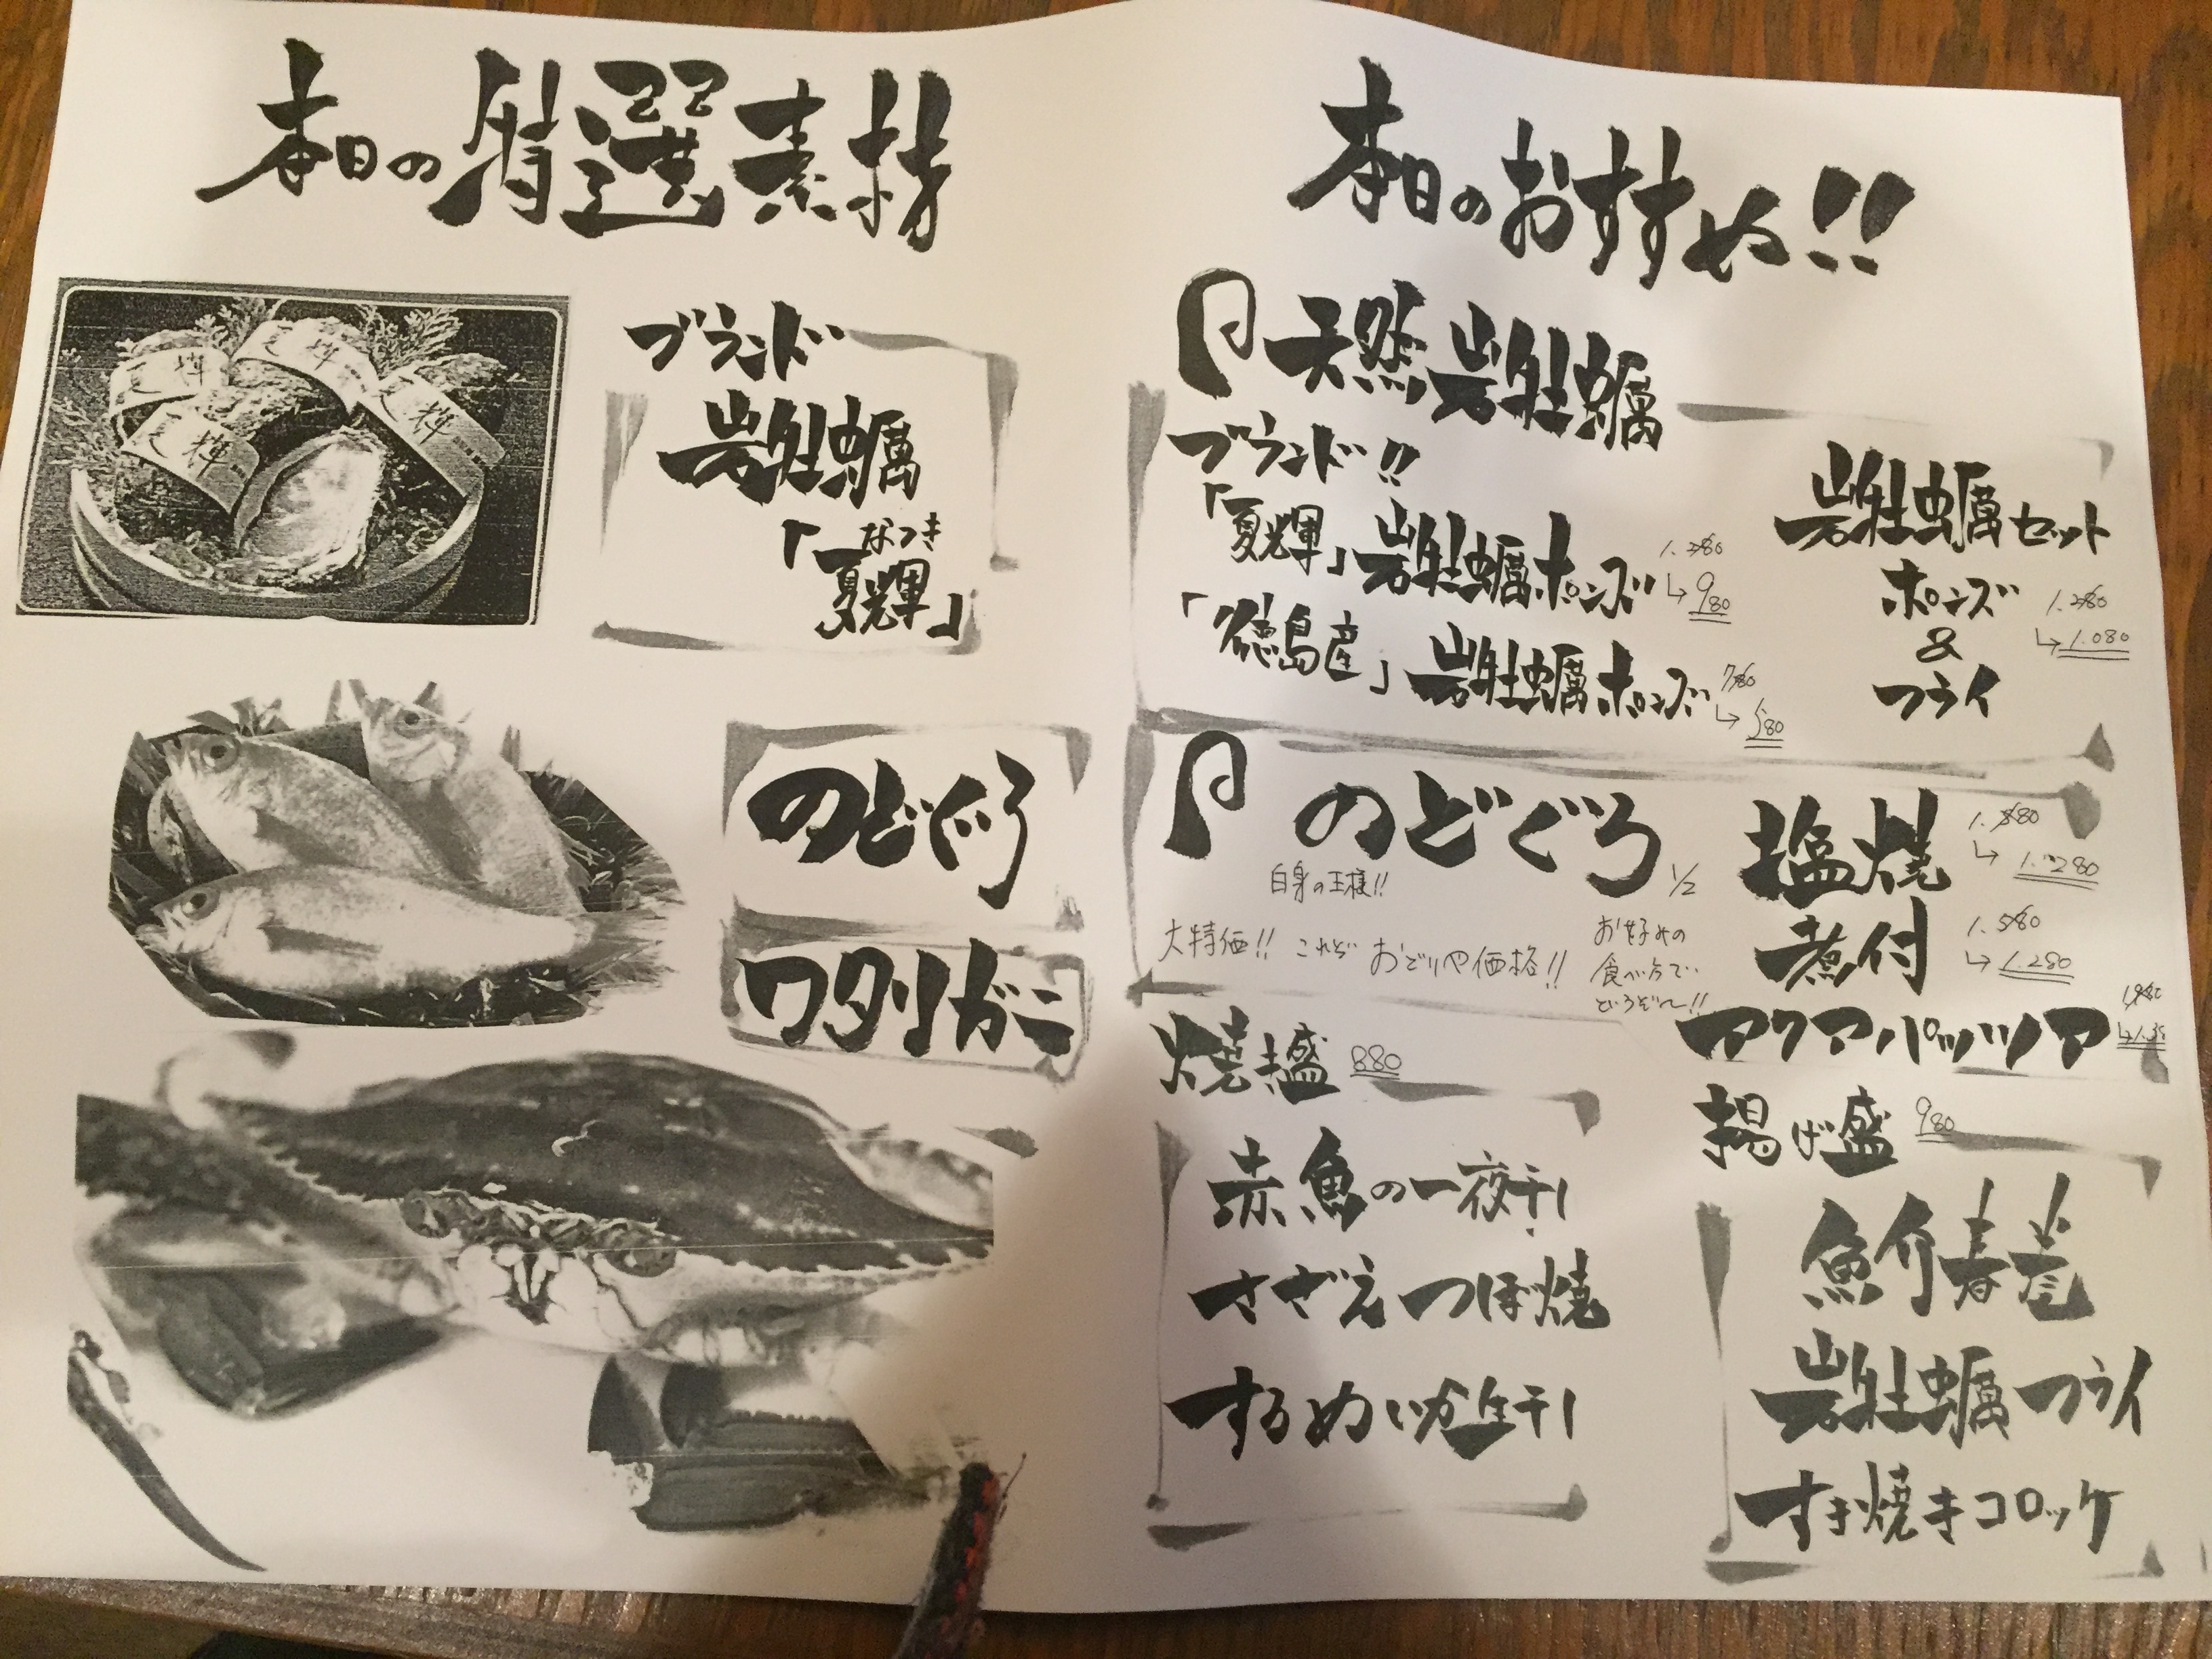 本日の特選素材
ブランド
岩牡蠣
なつき
「夏輝」
のどぐろ
ワタリガニ
夏輝
夏輝
夏輝
夏輝
本日のおすすめ!!
天然岩牡蠣
ブランド!!
「夏輝」岩牡蠣ポンズ
1.280
↳980
「徳島産」岩牡蠣ポンズ
780
↳580
岩牡蠣セット
ポンズ
&
フライ
1.280
↳1.080
のどぐろ 1/2
白身の王様!!
大特価!! これぞ おどりや価格!!
お好みの
食べ方で
どうぞ〜!!
塩焼
↳1.280
煮付
1.580
↳1.280
アクアパッツァ
焼き盛 880
赤魚の一夜干し
さざえつぼ焼
するめいか生干し
揚げ盛 980
魚介春巻
岩牡蠣フライ
すき焼きコロッケ